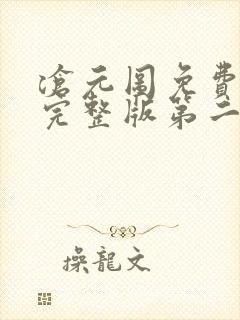 滄元圖免費
完整版第二
操龍文